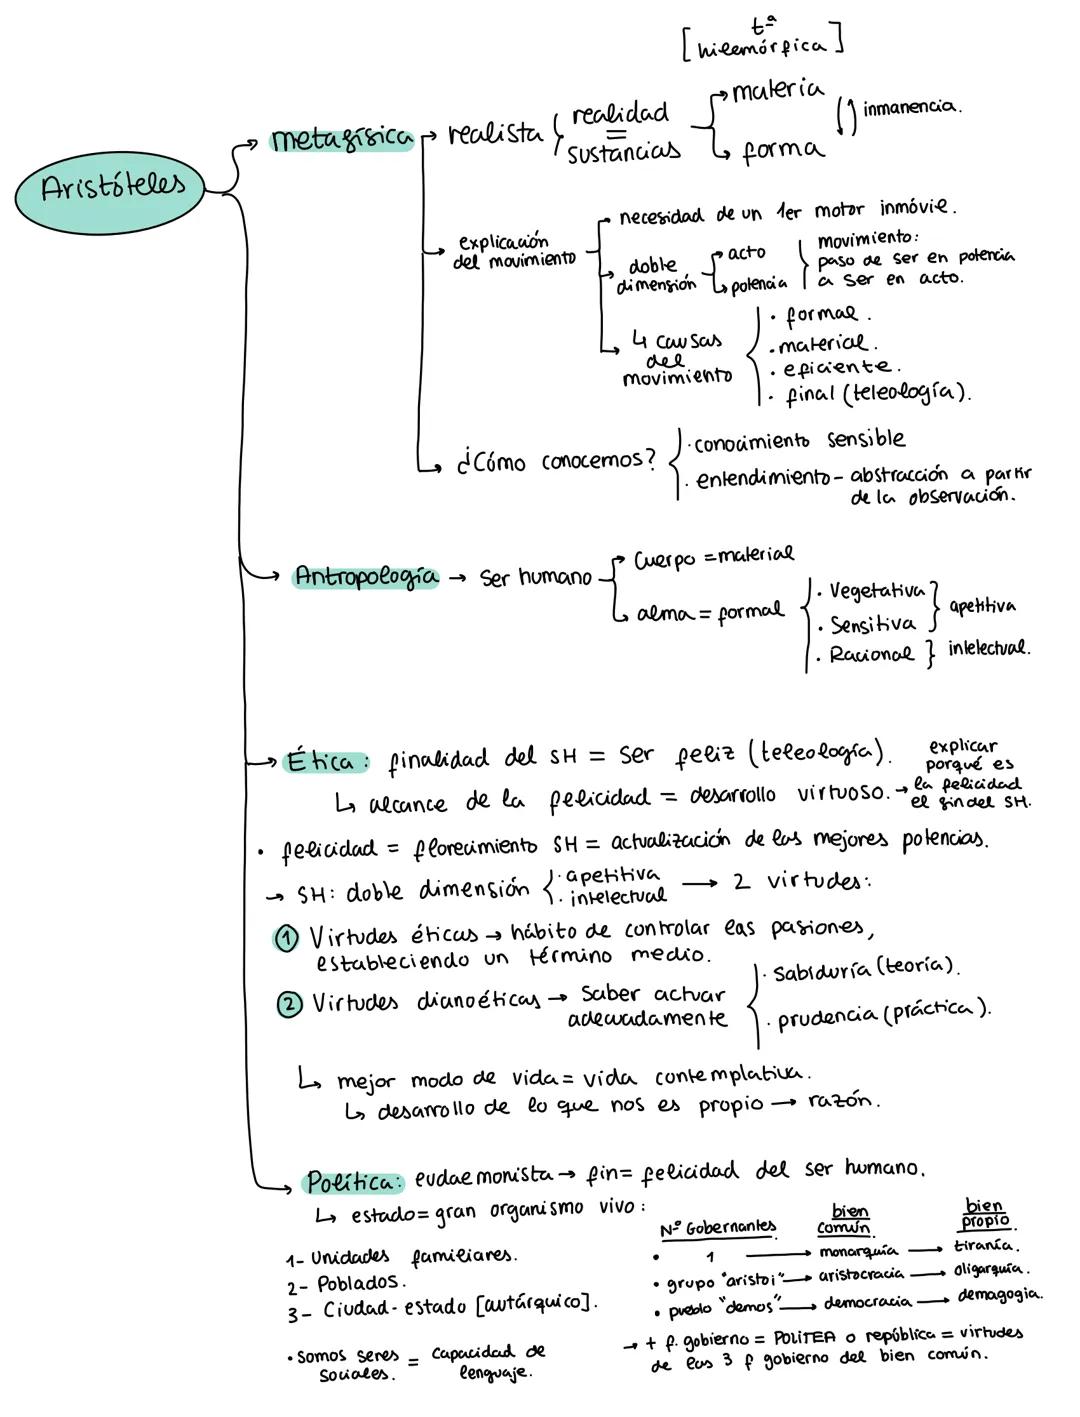 [ tª
hilemórfica ]
Aristóteles
metafísica → realista { realidad
=
sustancias
→ materia
→ forma
inmanencia.
→ explicación
del movimiento
→ necesidad de un 1er motor inmóvil.
→ doble
dimensión
→ acto
→ potencia
movimiento:
paso de ser en potencia
a ser en acto.
→ 4 causas
del
movimiento
· formal.
· material.
· eficiente.
· final (teleología).
→ ¿Cómo conocemos?
· conocimiento sensible
· entendimiento - abstracción a partir
de la observación.
→ Antropología → ser humano
→ Cuerpo = material
→ alma = formal
· Vegetativa
· Sensitiva
} apetitiva
· Racional } intelectual.
→ Ética: finalidad del SH = ser feliz (teleología).
↳ alcance de la felicidad = desarrollo virtuoso. →
explicar
porqué es
la felicidad
el fin del SH.
· felicidad = florecimiento SH = actualización de las mejores potencias.
→ SH: doble dimensión { · apetitiva
· intelectual
→ 2 virtudes:
① Virtudes éticas → hábito de controlar las pasiones,
estableciendo un término medio.
② Virtudes dianoéticas → Saber actuar
adecuadamente
· Sabiduría (teoría).
· prudencia (práctica).
↳ mejor modo de vida = vida contemplativa.
↳ desarrollo de lo que nos es propio → razón.
→ Política: eudaemonista → fin = felicidad del ser humano.
↳ estado = gran organismo vivo:
1- Unidades familiares.
2- Poblados.
3- Ciudad-estado [autárquico].
· Somos seres
sociales.
= Capacidad de
lenguaje.
Nº Gobernantes
bien
común.
bien
propio.
· 1 → monarquía → tiranía.
· grupo "aristoi" → aristocracia → oligarquía.
· pueblo "demos" → democracia → demagogia.
→ + f. gobierno = POLITEA o república = virtudes
de las 3 f gobierno del bien común.